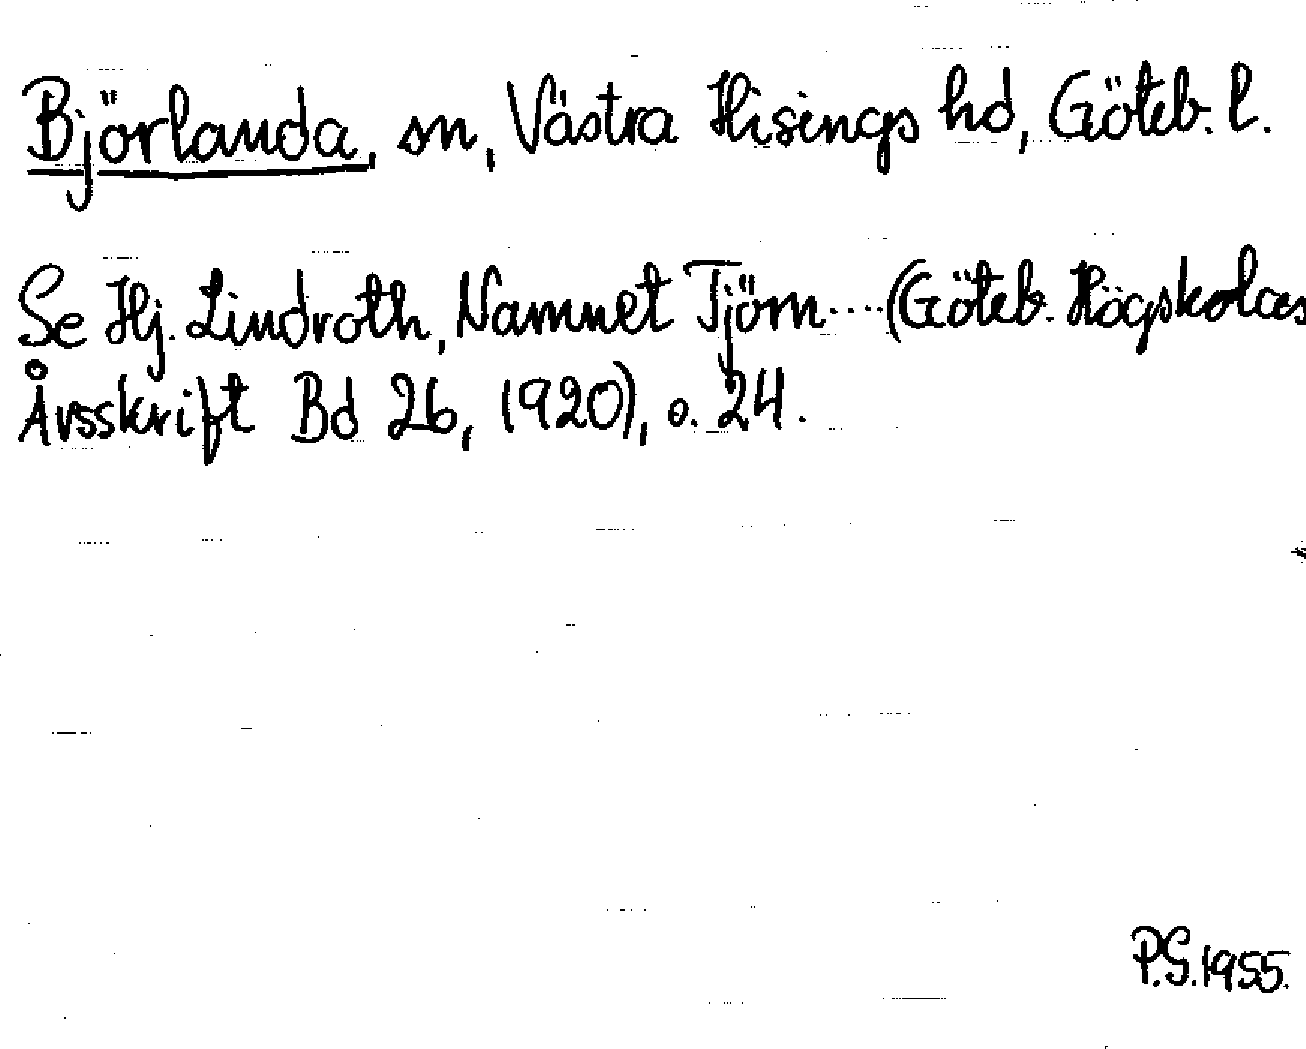 Björlanda, sn, Västra Hisings hd, Göteb. l.
Se Hj. Lindroth, Namnet Tjörn....(Göteb. Högskolas
Årsskrift Bd 26, 1920), s. 24.
P.G.1955.